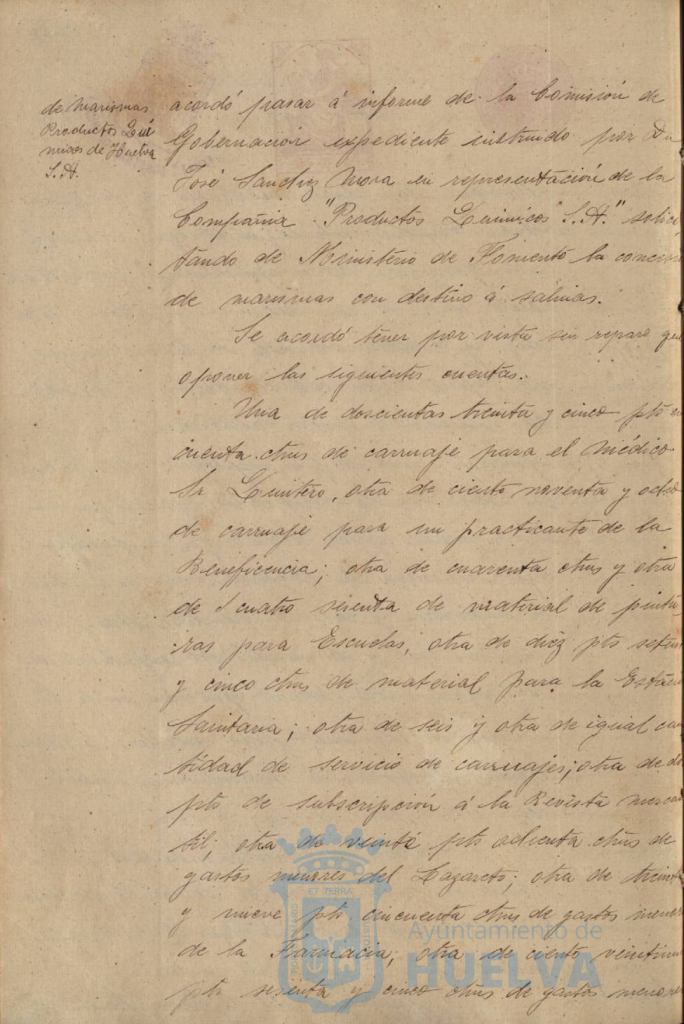 de marismas
Productos Quí
micos de Huelva
S.A.
acordó pasar á informe de la Comisión de
Gobernación expediente instruido por Dn
José Sanchez Mora en representación de la
Compañia "Productos Quimicos S.A." solici
tando de Ministerio de Fomento la concesión
de marismas con destino á salinas.
Se acordó tener por vista sin reparo que
oponer las siguientes cuentas.
Una de doscientas treinta y cinco pts
cuenta ctms de carruaje para el Médico
Sr Quintero, otra de ciento noventa y ocho
de carruaje para un practicante de la
Beneficencia; otra de cuarenta ctms y otra
de cuatro sesenta de material de pintu
ras para Escuelas; otra de diez pts seten
y cinco ctms de material para la Estáció
Sanitaria; otra de seis y otra de igual can
tidad de servicio de carruajes; otra de
pts de subscripción á la Revista mercan
til; otra de veinte pts ochenta ctms de
gastos menores del Lazareto; otra de treinta
y nueve pts cincuenta ctms de gastos menor
de la Farmacia; otra de ciento veintiun
pts sesenta y cinco ctms de gastos menores
ET TERRA
Ayuntamiento de
HUELVA